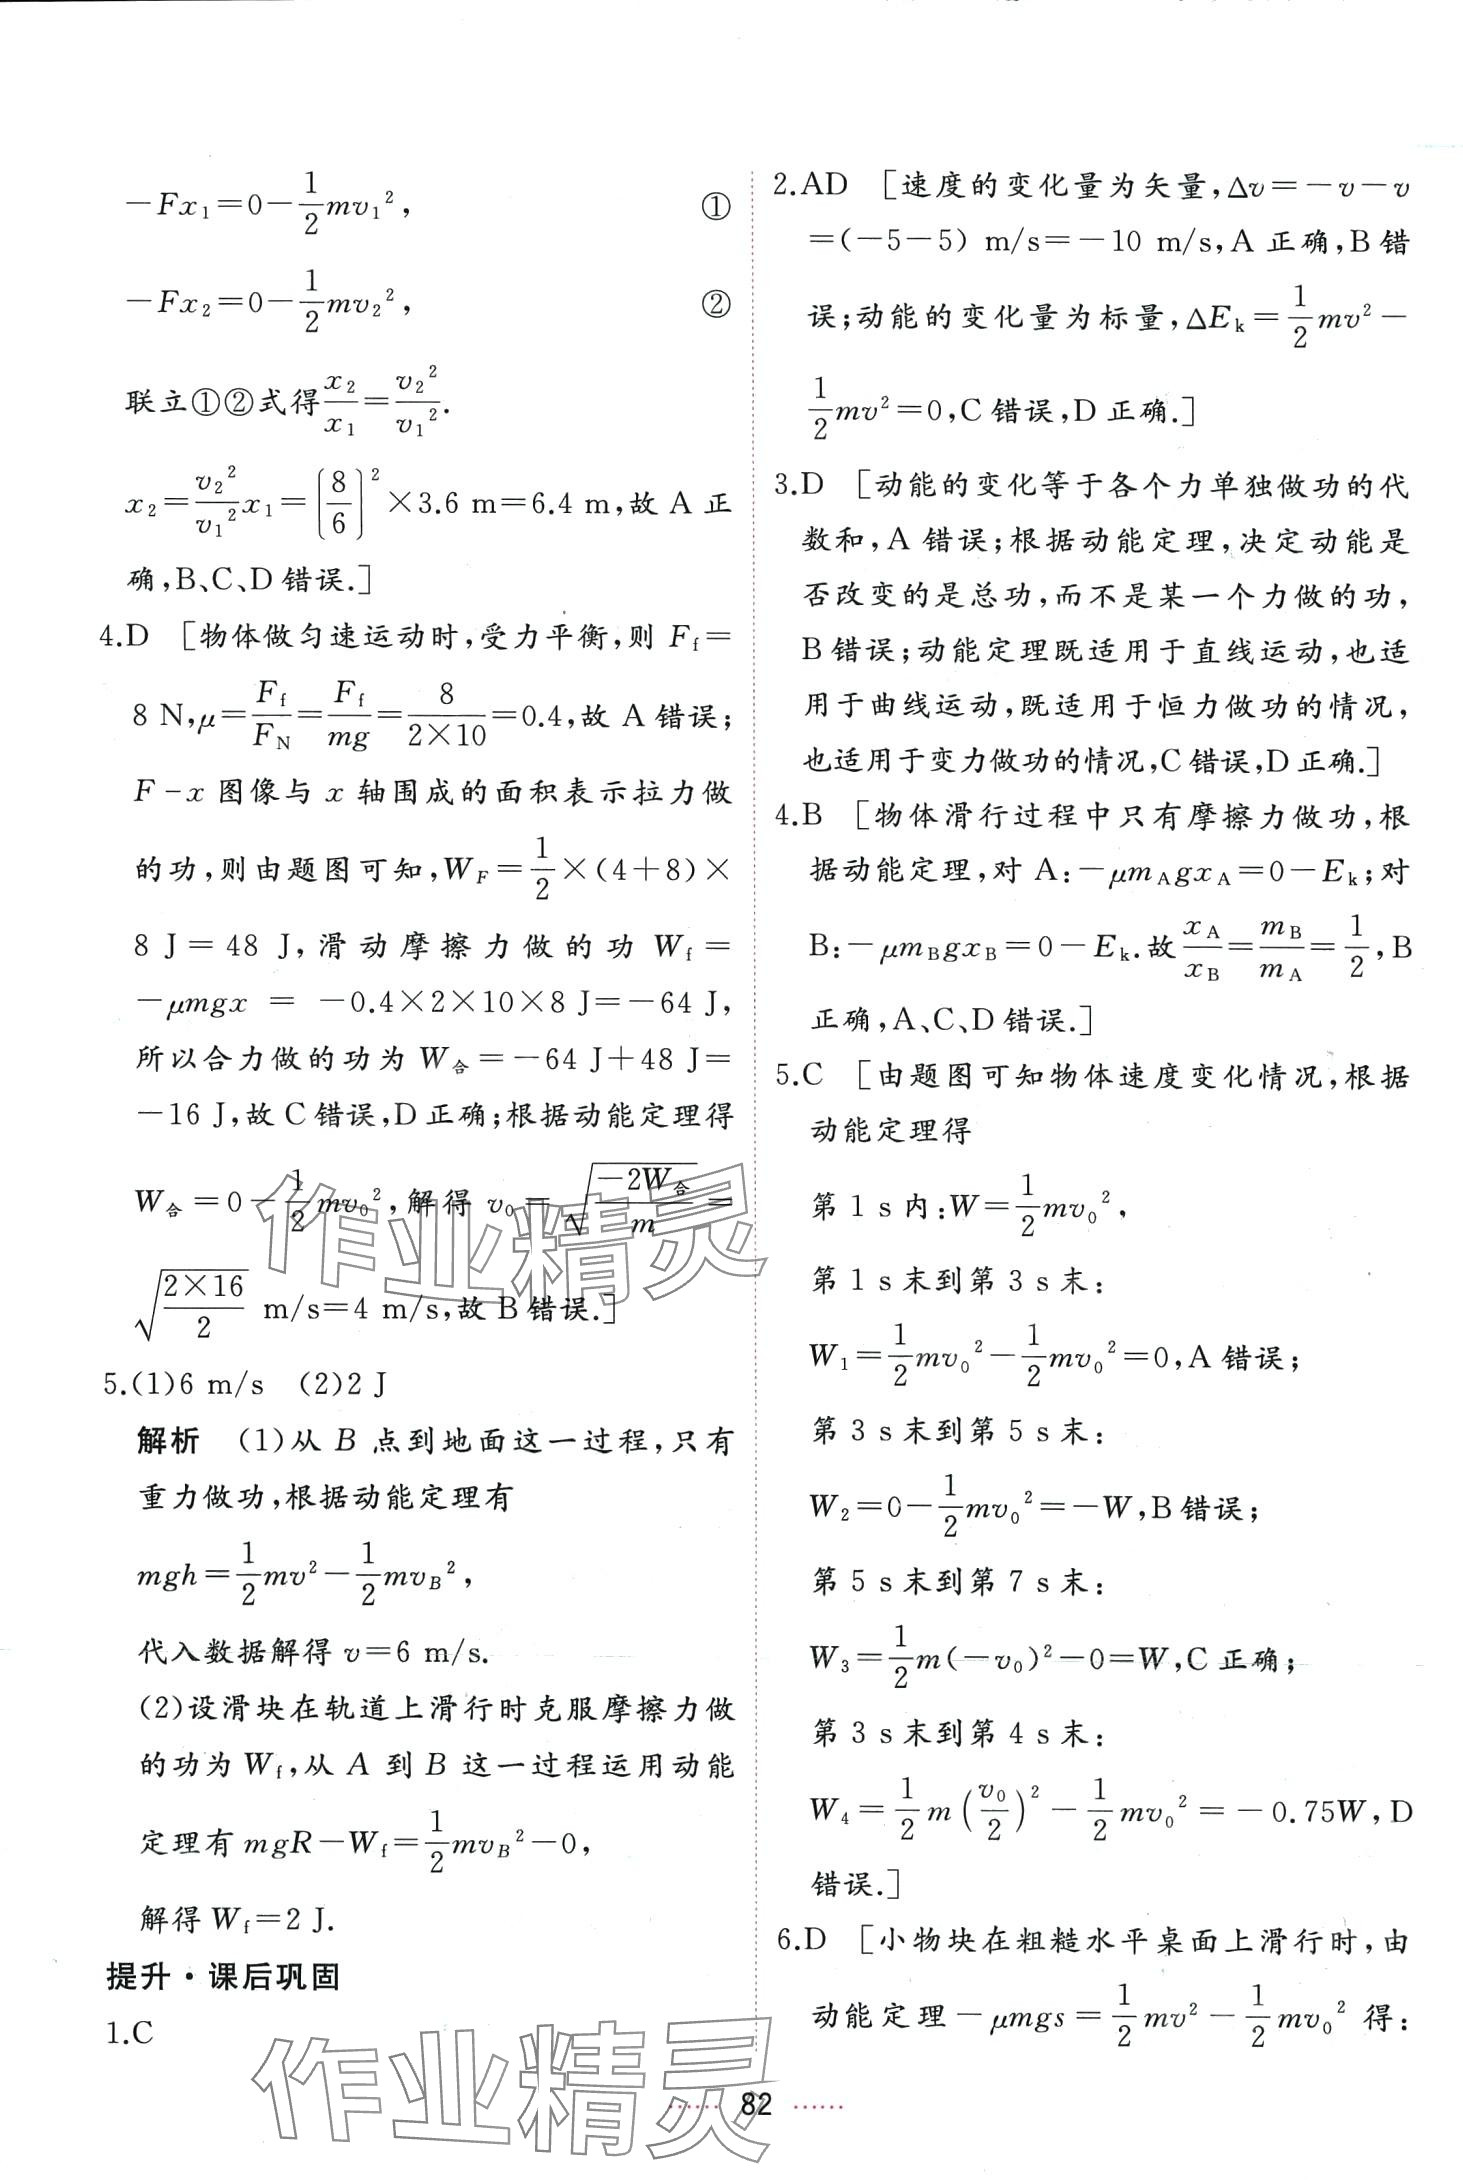 −Fx₁=0−1/2mv₁², ①
−Fx₂=0−1/2mv₂², ②
联立①②式得x₂/x₁=v₂²/v₁².
x₂=v₂²/v₁²x₁=(8/6)²×3.6 m=6.4 m,故A正
确,B、C、D错误.]
4.D [物体做匀速运动时,受力平衡,则F_f=
8 N,μ=F_f/F_N=F_f/mg=8/(2×10)=0.4,故A错误;
F-x图像与x轴围成的面积表示拉力做
的功,则由题图可知,W_F=1/2×(4+8)×
8 J=48 J,滑动摩擦力做的功W_f=
−μmgx=−0.4×2×10×8 J=−64 J,
所以合力做的功为W合=−64 J+48 J=
−16 J,故C错误,D正确;根据动能定理得
W合=0−1/2mv₀²,解得v₀=√(−2W合/m)=
√(2×16/2) m/s=4 m/s,故B错误.]
5.(1)6 m/s (2)2 J
解析 (1)从B点到地面这一过程,只有
重力做功,根据动能定理有
mgh=1/2mv²−1/2mv_B²,
代入数据解得v=6 m/s.
(2)设滑块在轨道上滑行时克服摩擦力做
的功为W_f,从A到B这一过程运用动能
定理有mgR−W_f=1/2mv_B²−0,
解得W_f=2 J.
提升·课后巩固
1.C
2.AD [速度的变化量为矢量,Δv=−v−v
=(−5−5) m/s=−10 m/s,A正确,B错
误;动能的变化量为标量,ΔE_k=1/2mv²−
1/2mv²=0,C错误,D正确.]
3.D [动能的变化等于各个力单独做功的代
数和,A错误;根据动能定理,决定动能是
否改变的是总功,而不是某一个力做的功,
B错误;动能定理既适用于直线运动,也适
用于曲线运动,既适用于恒力做功的情况,
也适用于变力做功的情况,C错误,D正确.]
4.B [物体滑行过程中只有摩擦力做功,根
据动能定理,对A:−μm_Agx_A=0−E_k;对
B:−μm_Bgx_B=0−E_k.故x_A/x_B=m_B/m_A=1/2,B
正确,A、C、D错误.]
5.C [由题图可知物体速度变化情况,根据
动能定理得
第1 s内:W=1/2mv₀²,
第1 s末到第3 s末:
W₁=1/2mv₀²−1/2mv₀²=0,A错误;
第3 s末到第5 s末:
W₂=0−1/2mv₀²=−W,B错误;
第5 s末到第7 s末:
W₃=1/2m(−v₀)²−0=W,C正确;
第3 s末到第4 s末:
W₄=1/2m(v₀/2)²−1/2mv₀²=−0.75W,D
错误.]
6.D [小物块在粗糙水平桌面上滑行时,由
动能定理−μmgs=1/2mv²−1/2mv₀²得:
······82······
作业精灵
作业精灵